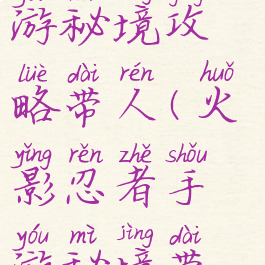 游秘境攻
lüè dài rén huǒ
略带人(火
yǐng rěn zhě shǒu
影忍者手
yóu mì jìng dài